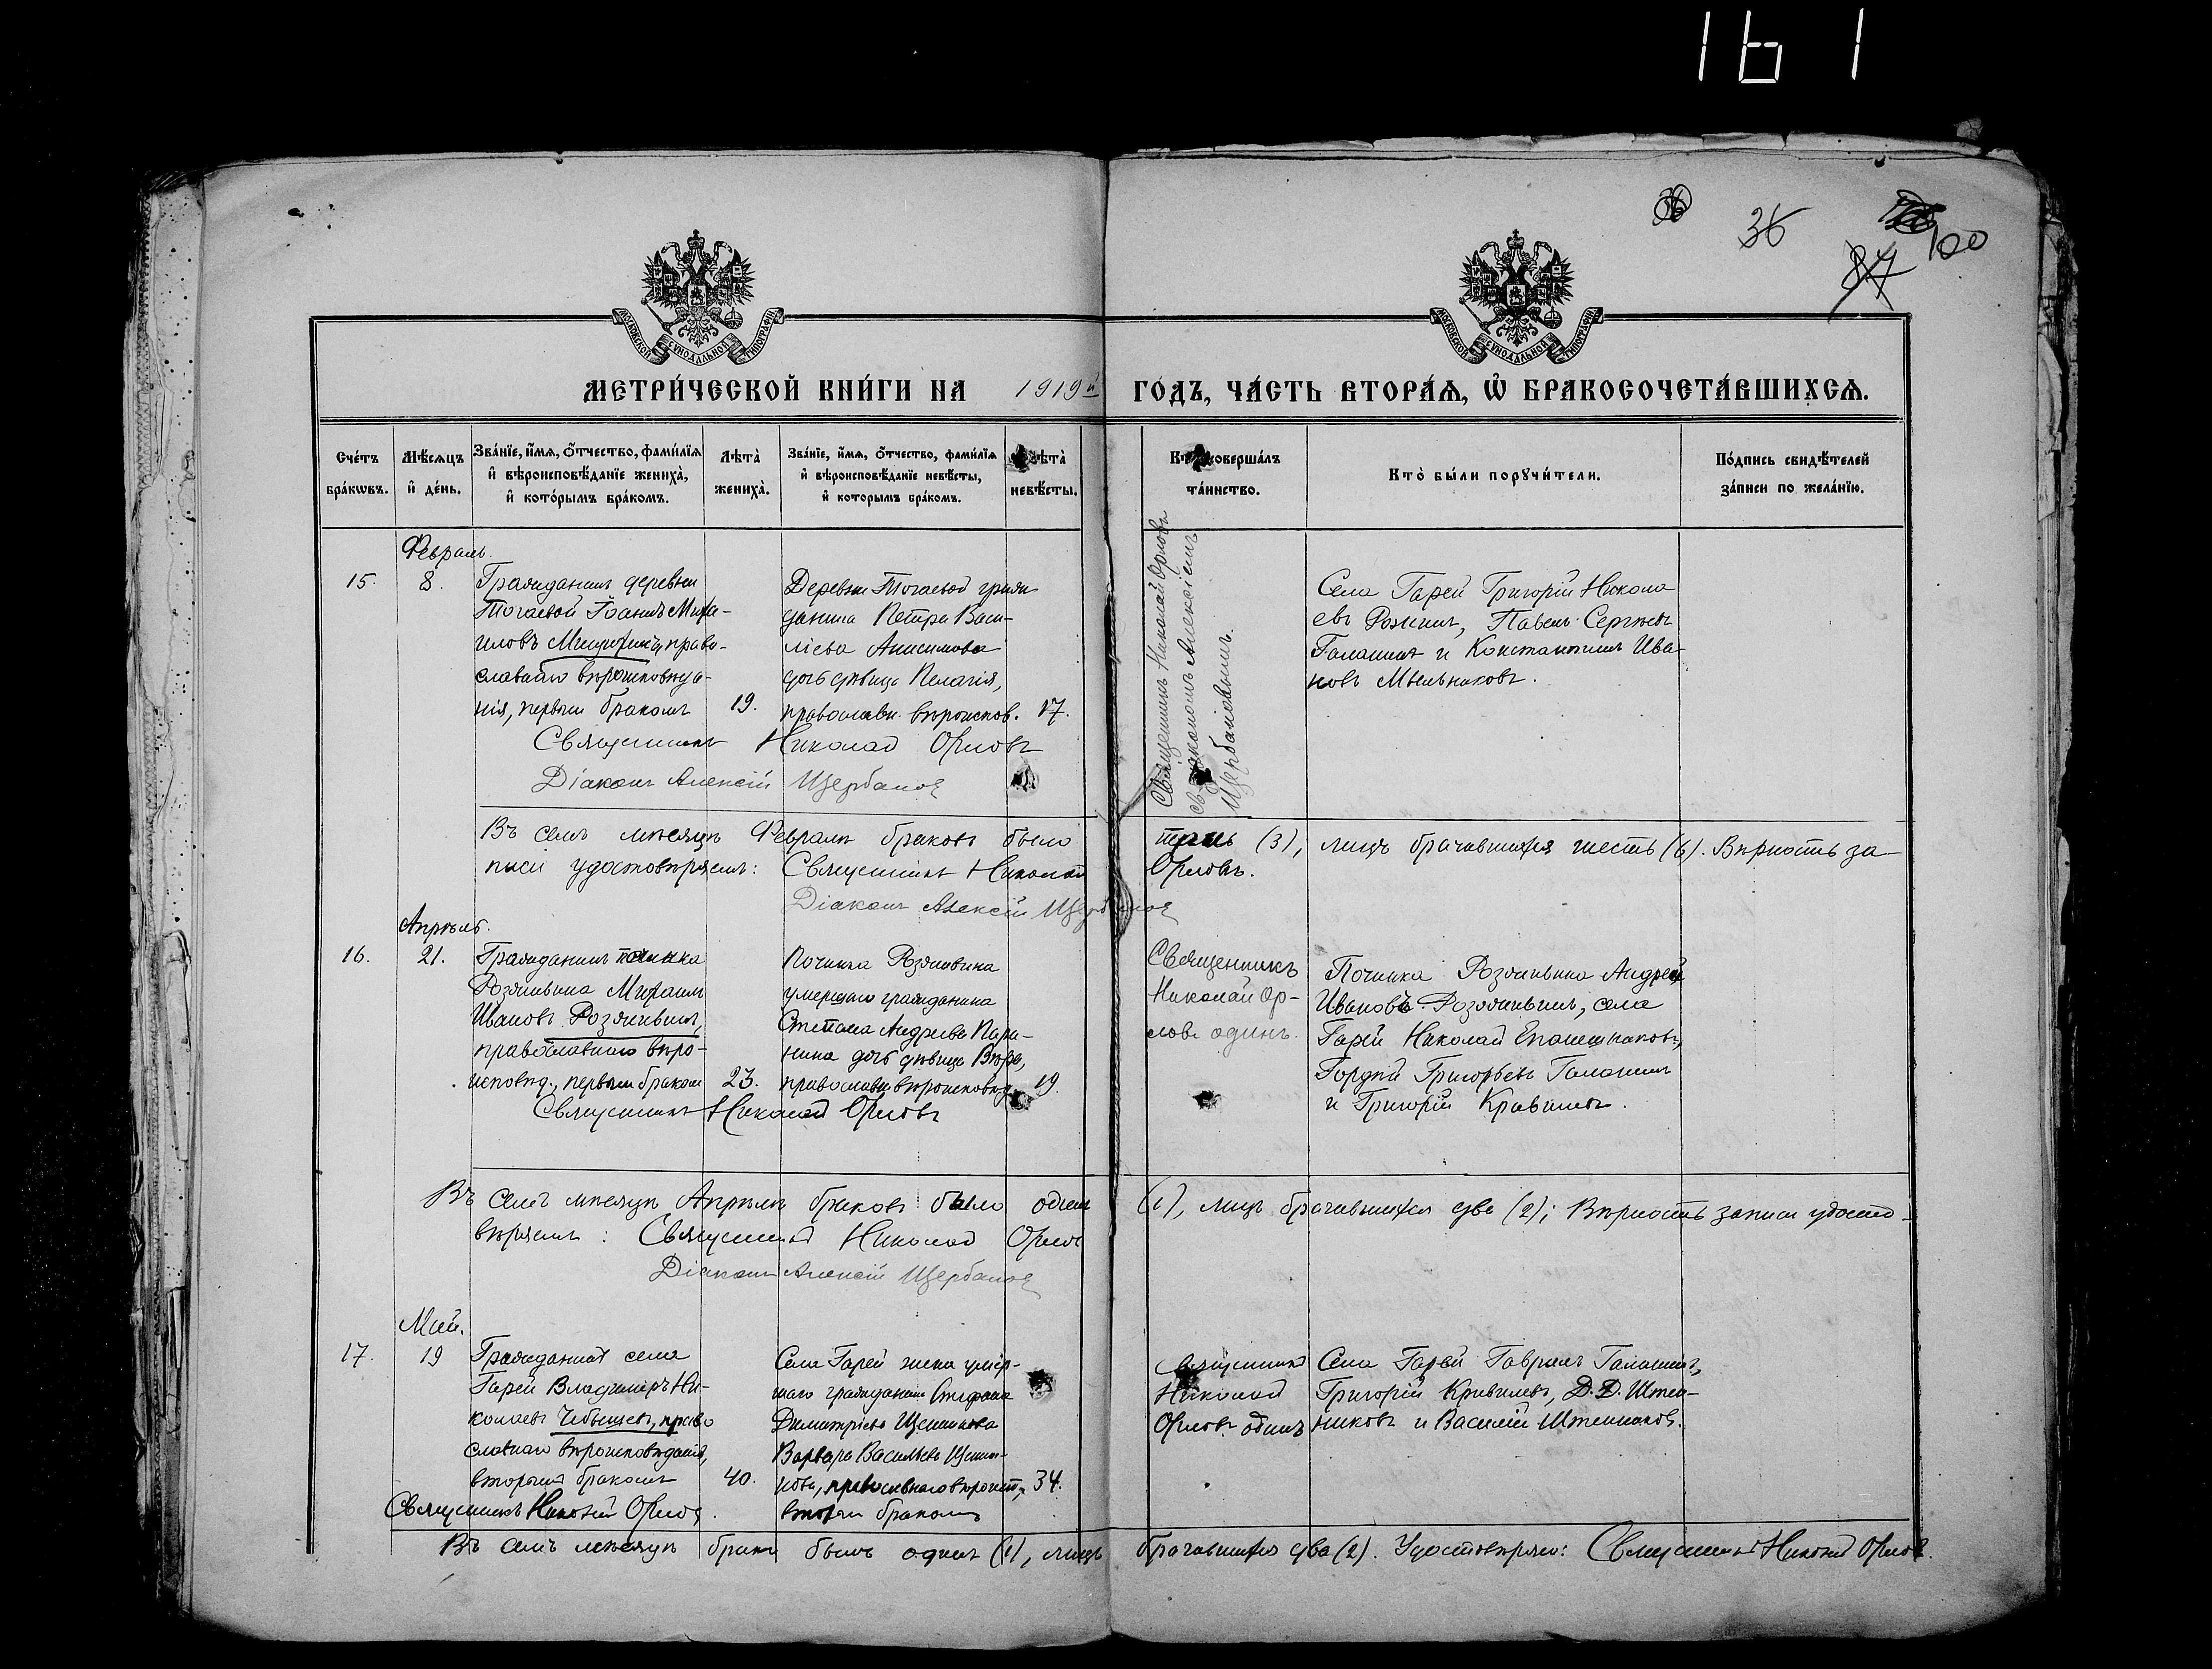 161
36
100
87
МОСКОВСКОЙ СѴНОДАЛЬНОЙ ТИПОГРАФІИ
МОСКОВСКОЙ СѴНОДАЛЬНОЙ ТИПОГРАФІИ
МЕТРИ́ЧЕСКОЙ КНИ́ГИ НА 1919й ГОДЪ, ЧА́СТЬ ВТОРА́Ѧ, Ѡ҆ БРАКОСОЧЕТА́ВШИХСѦ.
Сче́тъ бра́кѡвъ.
Мѣ́сѧцъ и҆ де́нь.
Зва́нїе, и҆́мѧ, ѻ҆́тчество, фами́лїѧ и҆ вѣроисповѣ́данїе жениха̀, и҆ кото́рымъ бра́комъ.
Лѣта̀ жениха̀.
Зва́нїе, и҆́мѧ, ѻ҆́тчество, фами́лїѧ и҆ вѣроисповѣ́данїе невѣ́сты, и҆ которымъ бра́комъ.
Лѣта̀ невѣ́сты.
Кто̀ соверша́лъ та́инство.
Кто̀ бы́ли порꙋчи́тели.
По́дпись свидѣ́телей за́писи по жела́нїю.
Февраль.
15.
8.
Гражданинъ деревни
Тогаевой Іоаннъ Миха-
иловъ
право-
славнаго вѣроисповѣда-
нія, первымъ бракомъ
19.
Деревни Тогаевой граж-
данина Петра Васи-
ліева Анисимова
дочь дѣвица Пелагія,
православн. вѣроиспов.
17.
Священникъ Николай Орловъ
съ діакономъ Алексіемъ
Щербаковымъ.
Села Гарей Григорій Никола
евъ Рожинъ, Павелъ Сергѣевъ
Галашинъ и Константинъ Ива-
новъ Мѣльниковъ.
Священникъ Николай Орловъ
Діаконъ Алексій Щербаковъ
Въ семъ мѣсяцѣ Февралѣ браковъ было три (3), лицъ брачившихся шесть (6). Вѣрность за-
писи удостовѣряемъ: Священникъ Николай Орловъ.
Діаконъ Алексій Щербаковъ
Апрѣль.
16.
21.
Гражданинъ починка
Михаилъ
Ивановъ
православнаго вѣро-
исповѣд., первымъ бракомъ
23.
Починка
умершаго гражданина
Степана Андреева
дочь дѣвица Вѣра,
православн. вѣроисповѣд.
19.
Священникъ
Николай Ор-
ловъ одинъ.
Починка Андрей
Ивановъ села
Гарей Николай
Гордѣй Григорьевъ Галашинъ
и Григорій Кривилевъ.
Священникъ Николай Орловъ
Въ семъ мѣсяцѣ Апрѣлѣ браковъ было одинъ (1), лицъ брачившихся два (2); Вѣрность записи удосто-
вѣряемъ: Священникъ Николай Орловъ
Діаконъ Алексій Щербаковъ
Май.
17.
19
Гражданинъ села
Гарей Владимиръ Ни-
колаевъ Чебышевъ, право
славнаго вѣроисповѣданія,
вторымъ бракомъ
40.
Села Гарей жена умер-
шаго гражданина Стефана
Димитріева
Варвара Васильева
православнаго вѣроисп.,
вторымъ бракомъ
34.
Священникъ
Николай
Орловъ одинъ
Села Гарей Гавриилъ Галашинъ,
Григорій Кривилевъ, Д. Д. Штен-
никовъ и Василій Штенниковъ.
Священникъ Николай Орловъ.
Въ семъ мѣсяцѣ бракъ былъ одинъ (1), лицъ брачившихся два (2). Удостовѣряю: Священникъ Николай Орловъ.